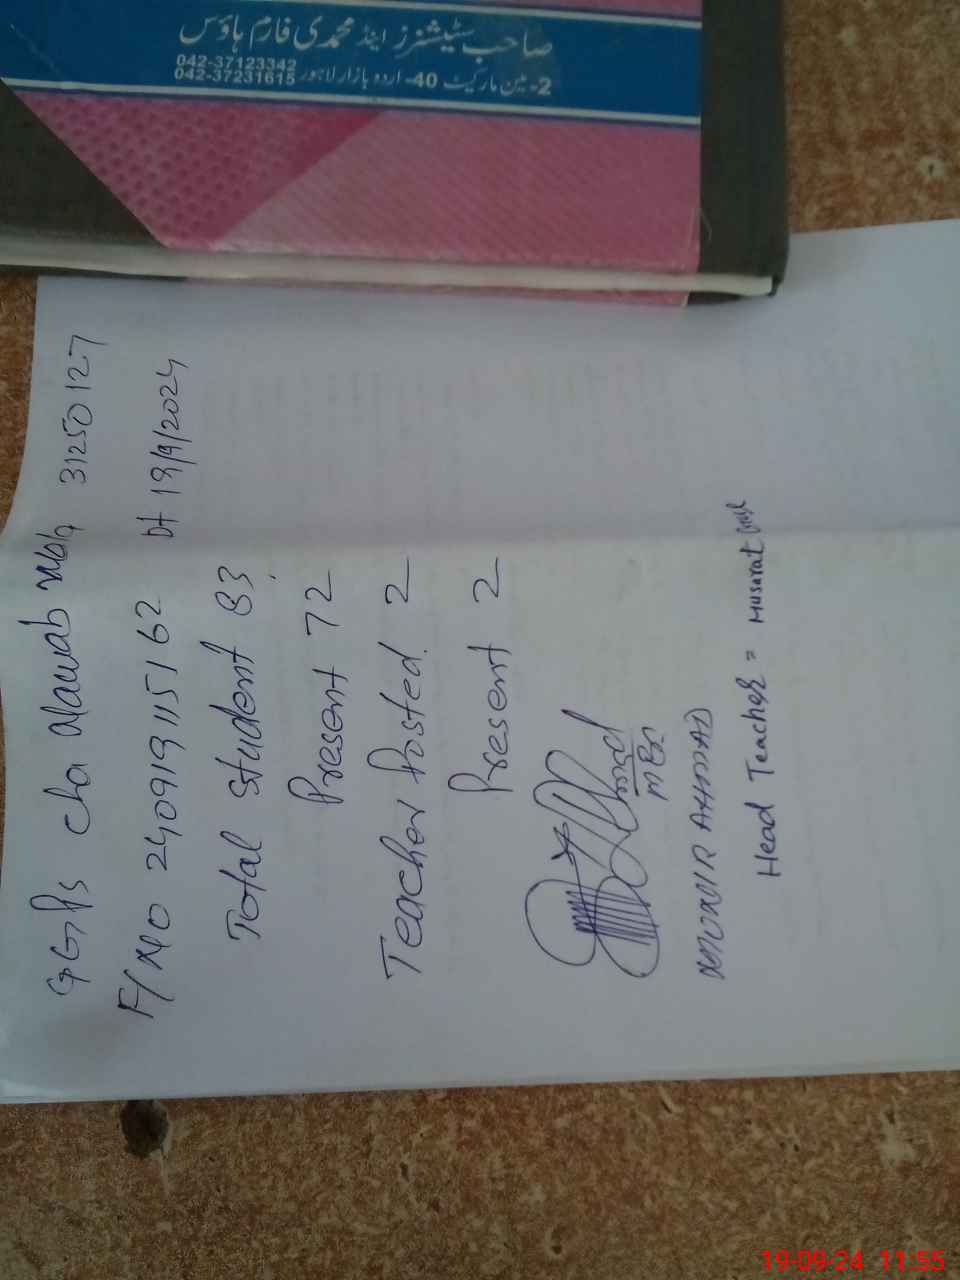 صاحب سٹیشنرز اینڈ محمدی فارم ہاؤس
042-37123342
042-37231615
2-مین مارکیٹ 40-اردو بازار لاہور
GGPS Cha Nawab wala 31250127
F/No 2409191115162 Dt 19/9/2024
Total student 83
Present 72
Teacher Posted 2
Present 2
MEA
AHMAD
Head Teacher = Musarat
19-09-24 11:55